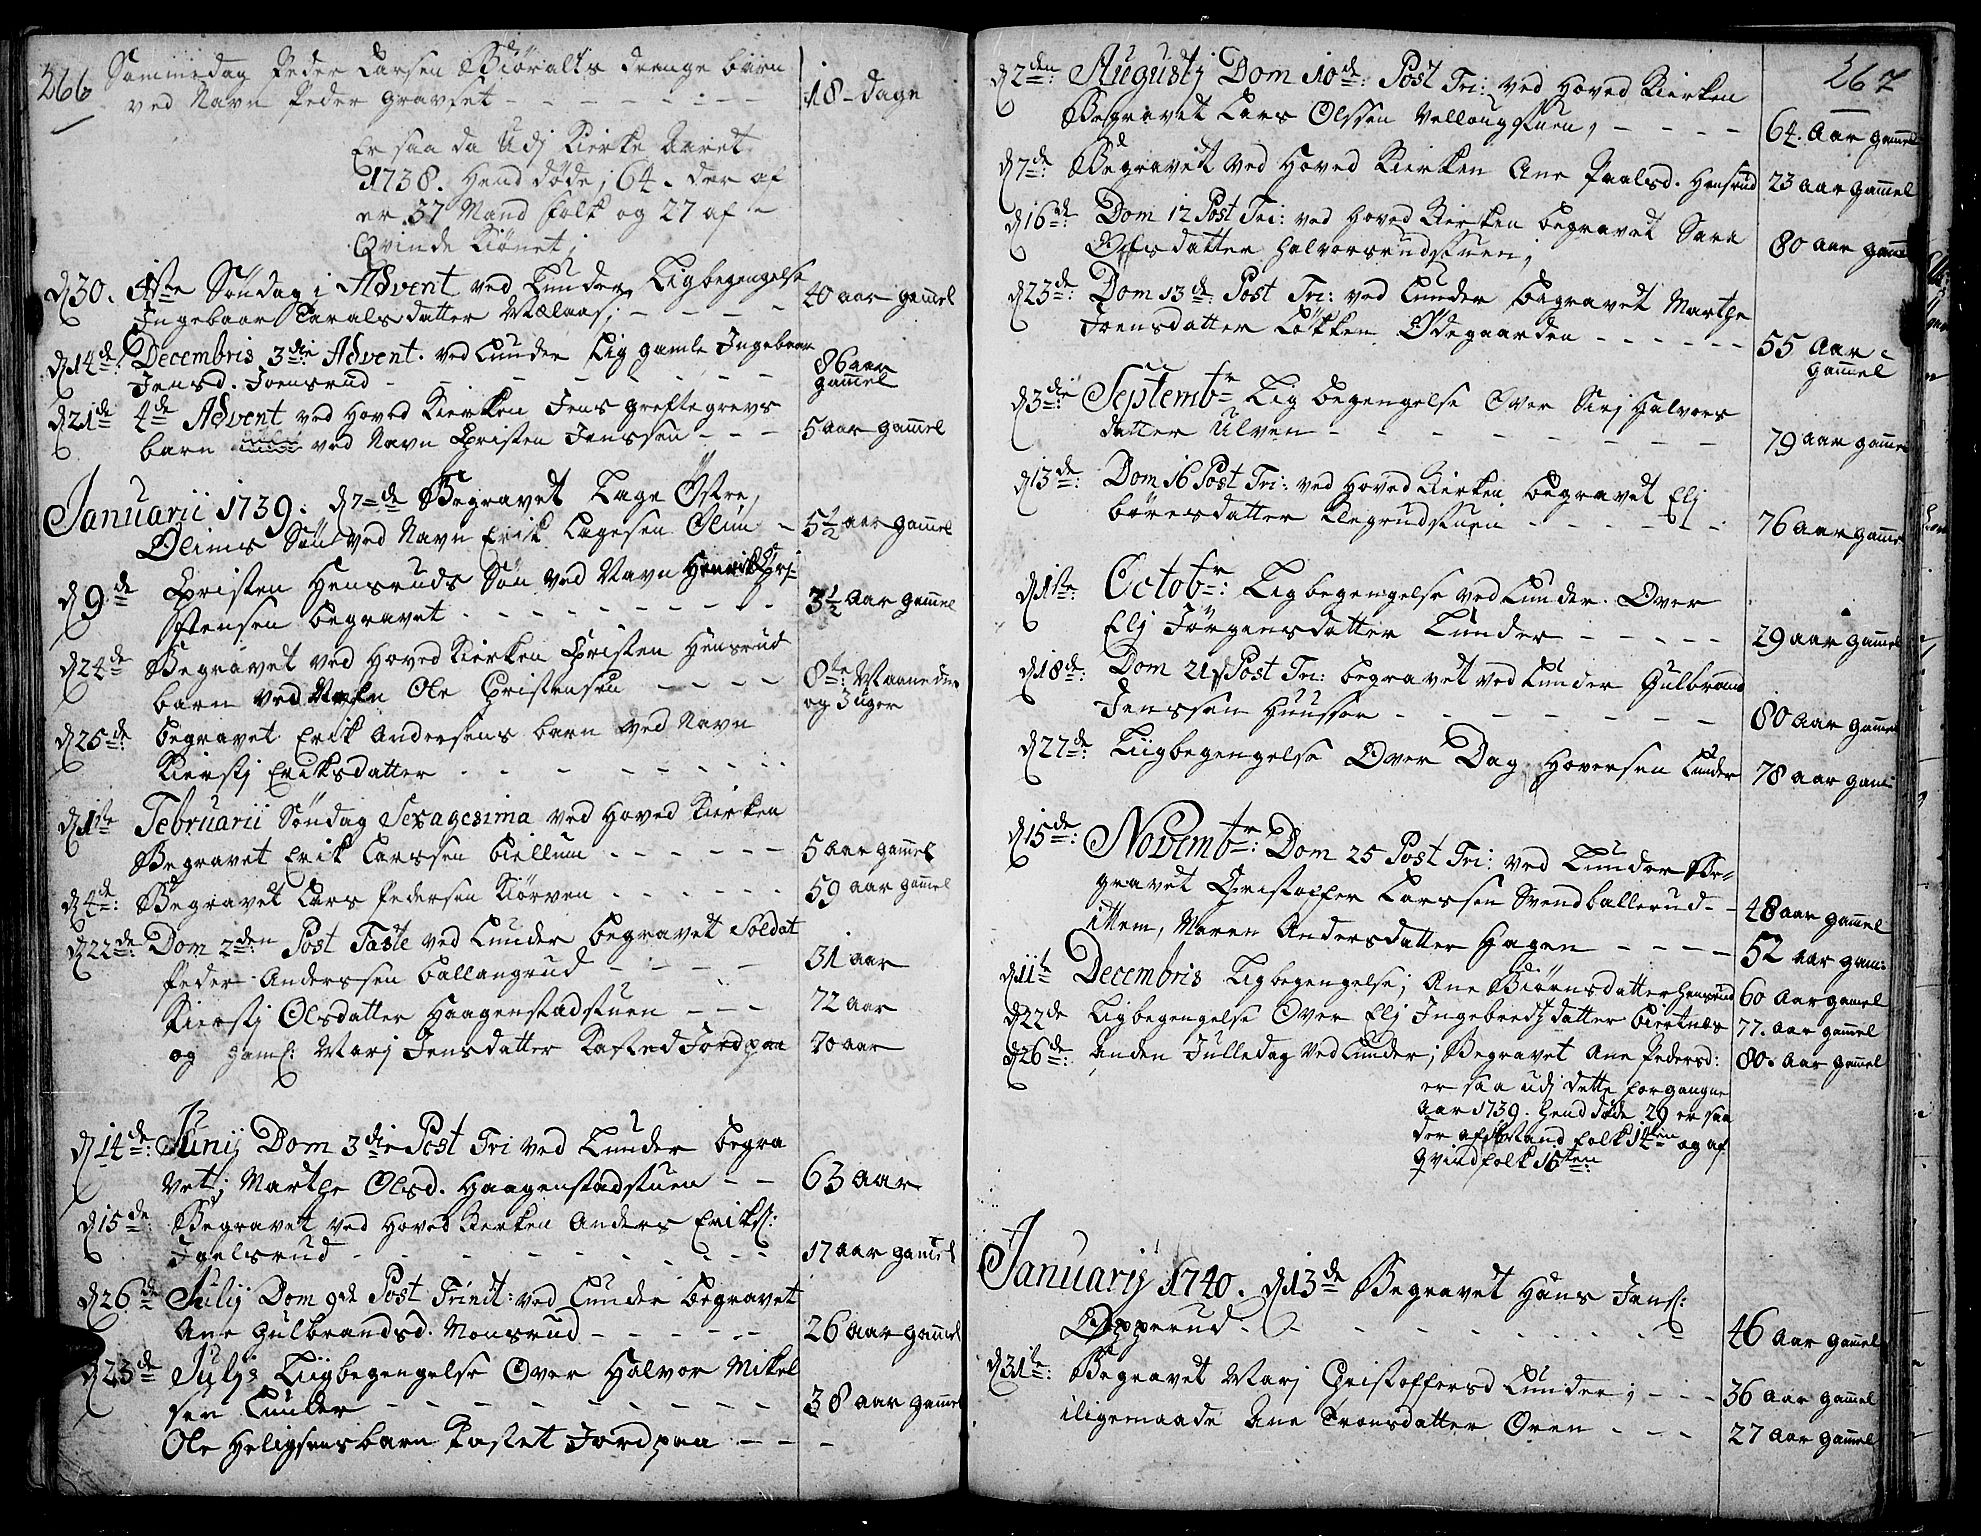 266
Sammedag Peder Larsen Biøralts drenge barn
ved Navn Peder gravset - - - - - - 18 - dage
Er saa da Udj Kirke Aaret
1738. Hend døde; 64. der af
er 37 Mand folk og 27 af
Qvinde Kiønet;
d 30. 1ste Søndag i Advent ved Lunder Ligbegengelse
Ingebaar Haraldsdatter Mælaas; - - - - 40 aar gamel
d 14de: Decembris 3die Advent. ved Lunder Lig gamle Ingebaar
Jensd. Joensrud - - - - - - - 86 aar gamel
d 21de 4de Advent ved Hoved Kierken Jens greftegrevs
barn ved Navn Christen Jenssen - - - 5 aar gamel
Januarii 1739. d 7=de Begravet Lage Østre,
Olims Søn ved Navn Erik Lagesen Olim - 5½ aar gamel
d 9.de Christen Hensruds Søn ved Navn Henrik Chri-
stensen begravet - - - - - - - - 3½ aar gamel
d 24de Begravet ved Hoved Kierken Christen Hensrud
barn ved Navn Ole Christensen - - - - 8te: Maaneder og 3 uger
d 25de: begravet Erik Andersens barn ved Navn
Kierstj Eriksdatter - - - - - - - -
d 1ste Februarii Søndag Sexagesima ved Hoved Kierken
Begravet Erik Larssen Biellum - - - - - - 5 aar gamel
d 4de: Begravet Lars Pedersen Kiørven - - - - - - 59 aar gamel
d 22de: Dom 2den Post Faste ved Lunder begravet Soldat
Peder Anderssen Ballangrud - - - - 31 aar
Kierstj Olsdatter Haagenstadstuen - - - 72 aar
og gaml: Marj Jensdatter Kasted Jord paa 70 aar
d 14de: Junij Dom 3die Post Tri ved Lunder begra
vet; Marthe Olsd. Haagenstadstuen - - 63 aar
d 15de: Begravet ved Hoved Kierken Anders Eriks:
Joelsrud - - - - - - - - - 17 aar gamel
d 26de Julij Dom 9de Post Trinit: ved Lunder begravet
Ane Gulbrandsd. Monsrud - - - - - 26 aar gamel
d 23de Julij Liigbegengelse Over Halvor Mikel
sen Lunder - - - - - - - - - 38 aar gamel
Ole Heligsens barn kastet Jord paa - - -
267
d 2den: Augustj Dom 10de: Post Tri: ved Hoved Kierken
Begravet Lars Olssen Vellaugstuen, - - - - 64. Aar gamel
d 7de: Begravet ved Hoved Kierken Ane Paalsd. Hensrud 23 aar gamel
d 16de: Dom 12 Post Tri: ved Hoved Kierken begravet Sara
Olsdatter Halvorsrudstuen; 80 aar gamel
d 23de: Dom 13de: Post Tri: ved Lunder begravet Marthe
Joensdatter Løkken Ødegaarden - - - - - - 55 Aar gamel
d 3die: Septembr Lig begengelse Over Sirj Halvors
datter Ulven - - - - - - - - - 79 aar gamel
d 13de: Dom 16 Post Tri: ved Hoved Kierken begravet Elj
Børesdatter Klegrudstuen - - - - - - 76 aar gamel
d 1ste: Octobr: Ligbegengelse ved Lunder. Over
Elj Jørgensdatter Lunder - - - - - 29 aar gamel
d 18de: Dom 21 Post Tri: begravet ved Lunder Gulbrand
Jenssen Huusser - - - - - - - 80 aar gamel
d 27de: Liigbegengelse Over Dag Hoversen Lunder 78 aar gam:
d 15de: Novembr: Dom 25 Post Tri: ved Lunder Be-
gravet Christoffer Larssen Svendballerud - - 48 aar gamel
ittem, Maren Andersdatter Hagen - - - - 52 aar gam:
d 11te Decembris Ligbegengelse; Ane Biørnsdatter Hensrud 60 Aar gamel
d 22de Ligbegengelse Over Elj Ingebretzdatter Biertnæs 77. aar gamel
d 26de: Anden Julledag ved Lunder; Begravet Ane Pedersd: 80. aar gamel
er saa udj dette forgangne
Aar 1739. Hend døde 29 er saa
der af Mand folk 14ten og af
Qvindfolk 15ten
Januarij 1740. d 13de Begravet Hans Jens:
Opperud - - - - - - - - - 46 Aar gamel
d 31te: Begravet Marj Christoffersd Lunder; - - - 36 aar gamel
iligemaade Ane Tronsdatter Oren - - - 27 aar gamel